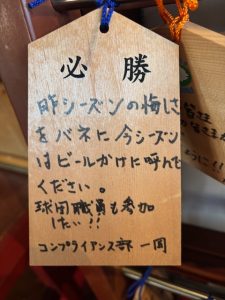 必勝
昨シーズンの悔しさ
をバネに今シーズン
はビールかけに呼んで
ください。
球団職員も参加
したい!!
コンプライアンス部 一同
ように!!